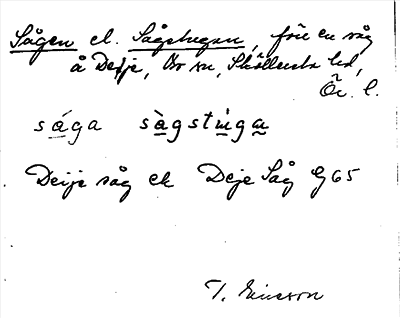 Sågen el. Sågstugan, före en såg
å Deije, Bo sn, Sköllersta hd,
Ör. l.
sága sàgstùga
Deije såg ek Deje Såg G65
T. Ericsson